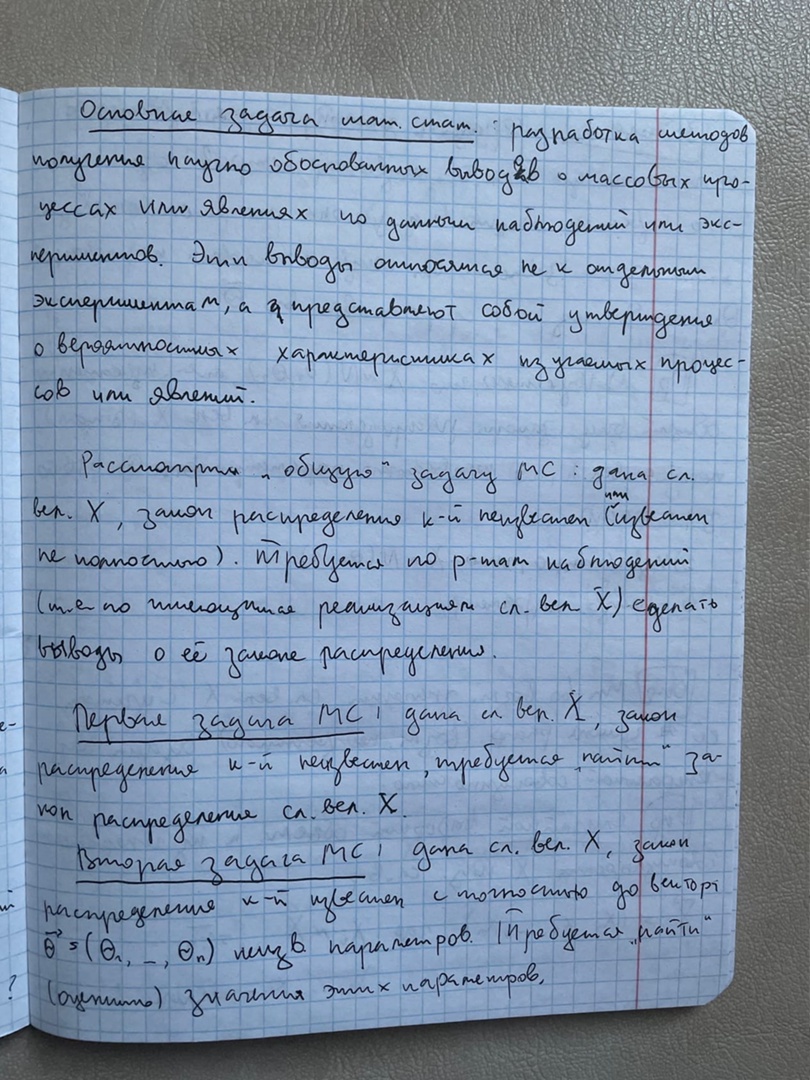 Основная задача мат. стат. : разработка методов
получения научно обоснованных выводов о массовых про-
цессах или явлениях по данным наблюдений или экс-
периментов. Эти выводы относятся не к отдельным
экспериментам, а представляют собой утверждения
о вероятностных характеристиках изучаемых процес-
сов или явлений.
Рассмотрим „общую" задачу МС : дана сл.
вел. X, закон распределения к-й неизвестен (или известен
не полностью). Требуется по р-там наблюдений
(т.е по имеющимся реализациям сл. вел. X) сделать
выводы о её законе распределения.
Первая задача МС: дана сл. вел. X, закон
распределения к-й неизвестен, требуется „найти" за-
кон распределения сл. вел. X.
Вторая задача МС: дана сл. вел. X, закон
распределения к-й известен с точностью до вектора
θ⃗ = (θ₁, _, θₙ) неизв. параметров. Требуется „найти"
(оценить) значения этих параметров.
?